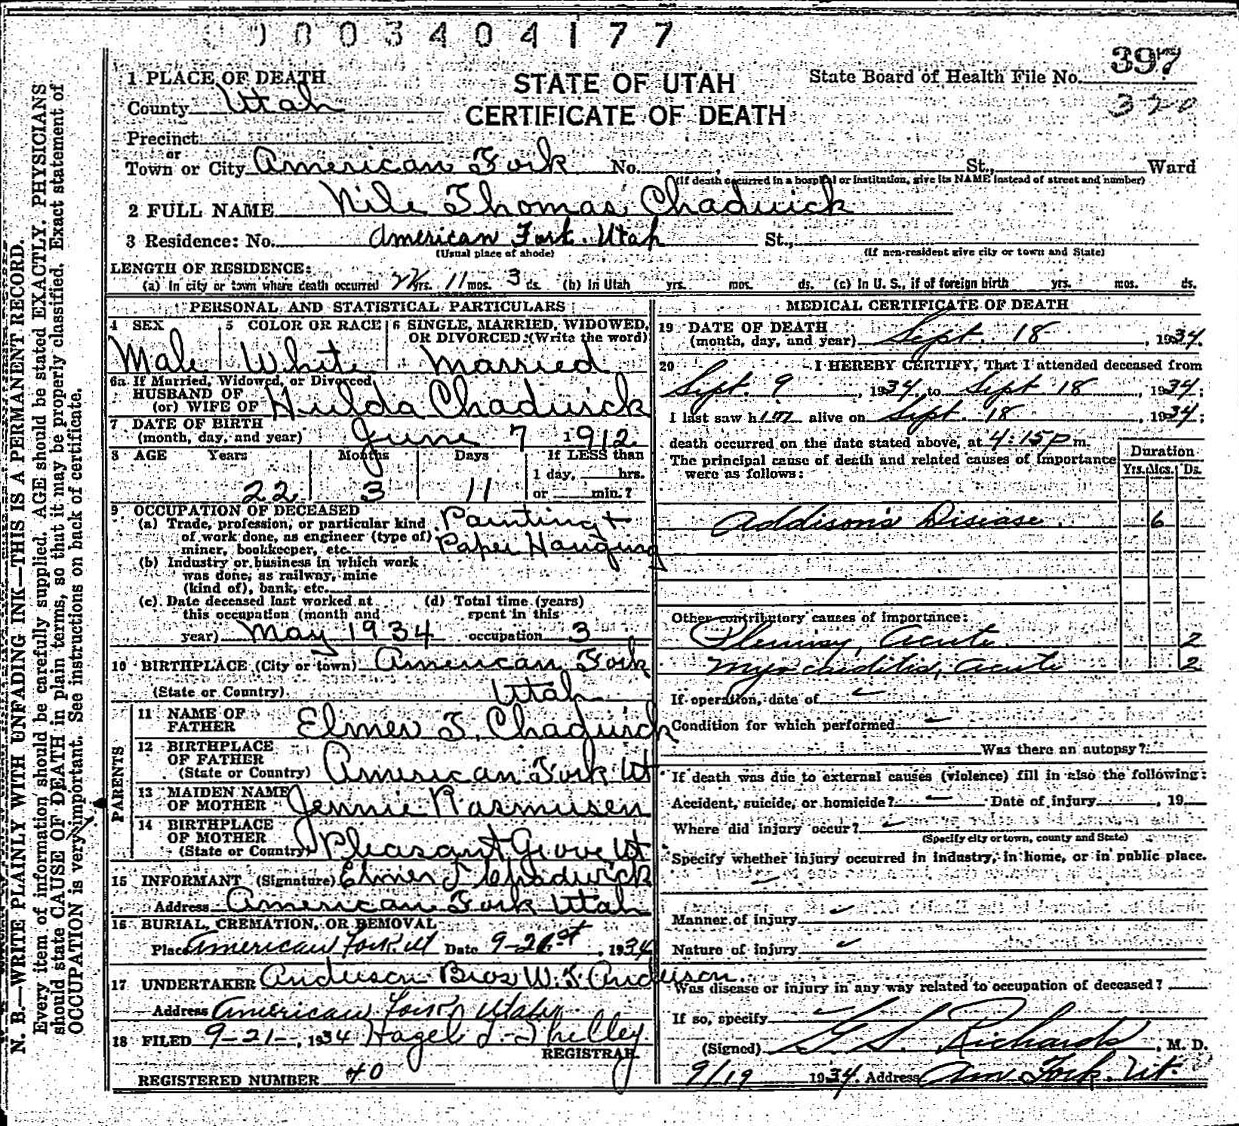 0003404177
397
320
STATE OF UTAH
CERTIFICATE OF DEATH
State Board of Health File No.
1 PLACE OF DEATH
County Utah
Precinct
or
Town or City American Fork No. St., Ward
(If death occurred in a hospital or institution, give its NAME instead of street and number)
2 FULL NAME Nile Thomas Chadwick
3 Residence: No. American Fork. Utah St.,
(Usual place of abode) (If non-resident give city or town and State)
LENGTH OF RESIDENCE:
(a) In city or town where death occurred 22 yrs. 11 mos. 3 ds. (b) In Utah yrs. mos. ds. (c) In U.S., if of foreign birth yrs. mos. ds.
PERSONAL AND STATISTICAL PARTICULARS
4 SEX 5 COLOR OR RACE 6 SINGLE, MARRIED, WIDOWED, OR DIVORCED (Write the word)
Male White Married
6a If Married, Widowed, or Divorced
HUSBAND OF
(or) WIFE OF Hulda Chadwick
7 DATE OF BIRTH
(month, day, and year) June 7 1912
8 AGE Years Months Days If LESS than
1 day, hrs.
22 3 11 or min.?
9 OCCUPATION OF DECEASED
(a) Trade, profession, or particular kind
of work done, as engineer (type of)
miner, bookkeeper, etc. Painting + Paper Hanging
(b) Industry or business in which work
was done, as railway, mine
(kind of), bank, etc.
(c) Date deceased last worked at (d) Total time (years)
this occupation (month and spent in this
year) May 1934 occupation 3
10 BIRTHPLACE (City or town) American Fork
(State or Country) Utah
PARENTS
11 NAME OF
FATHER Elmer T. Chadwick
12 BIRTHPLACE
OF FATHER
(State or Country) American Fork Ut
13 MAIDEN NAME
OF MOTHER Jennie Rasmusen
14 BIRTHPLACE
OF MOTHER
(State or Country) Pleasant Grove Ut
15 INFORMANT (Signature) Elmer T Chadwick
Address American Fork Utah
16 BURIAL, CREMATION, OR REMOVAL
Place American Fork Ut Date 9-21st, 1934
17 UNDERTAKER Anderson Bros W. T. Anderson
Address American Fork Utah
18 FILED 9-21-, 1934 Hazel J. Shelley
REGISTRAR
REGISTERED NUMBER 40
MEDICAL CERTIFICATE OF DEATH
19 DATE OF DEATH
(month, day, and year) Sept. 18, 1934.
20 I HEREBY CERTIFY, That I attended deceased from
Sept. 9, 1934, to Sept 18, 1934;
I last saw him alive on Sept. 18, 1934;
death occurred on the date stated above, at 4:15 p m.
The principal cause of death and related causes of importance
were as follows:
Duration
Yrs. Mos. Ds.
Addison's Disease. 6
Other contributory causes of importance:
Pleurisy, Acute 2
Myocarditis, acute 2
If operation, date of
Condition for which performed
Was there an autopsy?
If death was due to external causes (violence) fill in also the following:
Accident, suicide, or homicide? Date of injury , 19
Where did injury occur?
(Specify city or town, county and State)
Specify whether injury occurred in industry, in home, or in public place.
Manner of injury
Nature of injury
Was disease or injury in any way related to occupation of deceased?
If so, specify
(Signed) G. S. Richards, M. D.
9/19 1934. Address Am Fork. Ut.
N. B.—WRITE PLAINLY WITH UNFADING INK—THIS IS A PERMANENT RECORD.
Every item of information should be carefully supplied. AGE should be stated EXACTLY. PHYSICIANS
should state CAUSE OF DEATH in plain terms, so that it may be properly classified. Exact statement of
OCCUPATION is very important. See instructions on back of certificate.